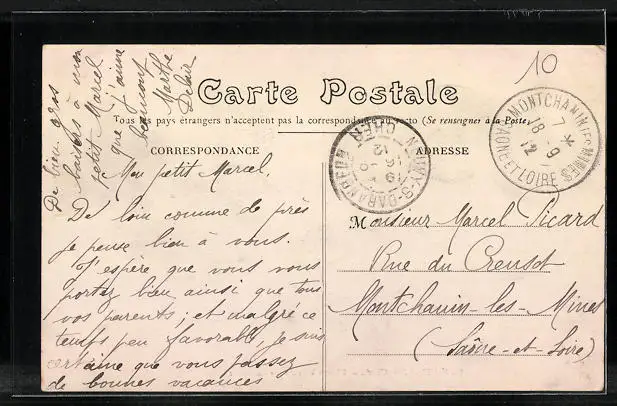 10
Carte Postale
Tous les pays étrangers n'acceptent pas la correspondance au recto (Se renseigner à la Poste)
CORRESPONDANCE
ADRESSE
MONTCHANIN LES MINES
SAONE ET LOIRE
18 - 9
12
CHER
12
Mon petit Marcel,
De loin comme de près
je pense bien à vous.
J'espère que vous vous
portez bien ainsi que tous
vos parents ; et malgré ce
temps peu favorable, je suis
certaine que vous passez
de bonnes vacances
De bien gros
baisers à mon
petit Marcel
que j'aime
Marthe
Monsieur Marcel Picard
Rue du Creusot
Montchanin-les-Mines
(Saône-et-Loire)